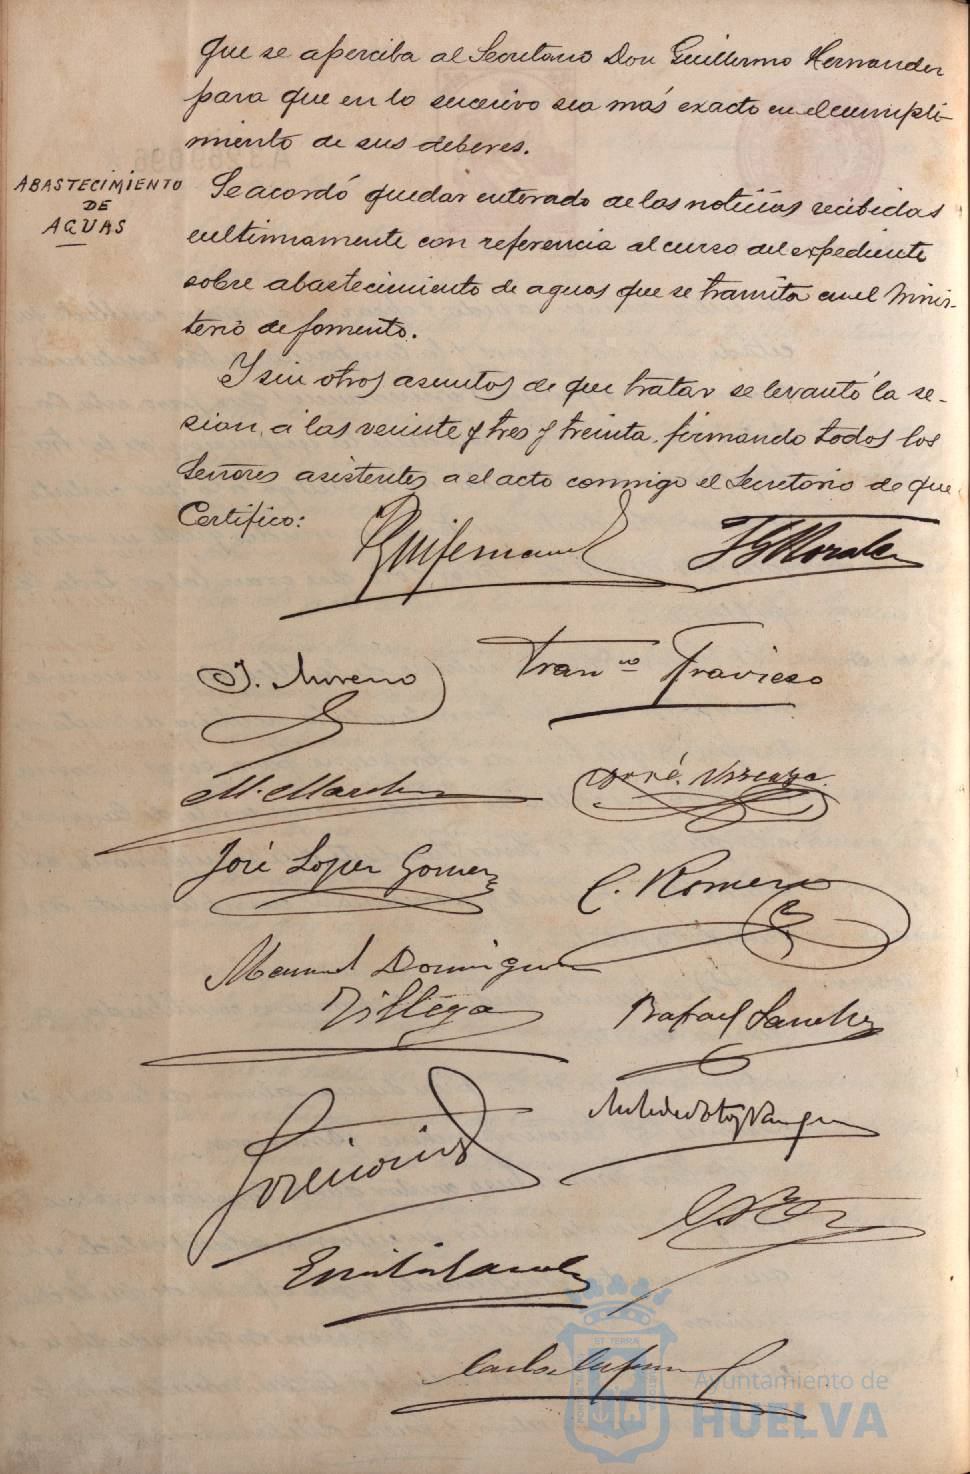 que se aperciba al Secretario Don Guillermo Hernandez
para que en lo sucesivo sea más exacto en el cumpli-
miento de sus deberes.
ABASTECIMIENTO
DE
AGUAS
Se acordó quedar enterado de las noticias recibidas
ultimamente con referencia al curso del expediente
sobre abastecimiento de aguas que se tramita en el Minis-
terio de fomento.
Y sin otros asuntos de que tratar se levantó la se-
sion, a las veinte y tres y treinta, firmando todos los
Señores asistentes a el acto conmigo el Secretario de que
Certifico:
J. Moreno
Fran.co Travieso
José Lopez Gomez
C. Romero
Manuel Dominguez
Rafael Sanchez
Ayuntamiento de
HUELVA